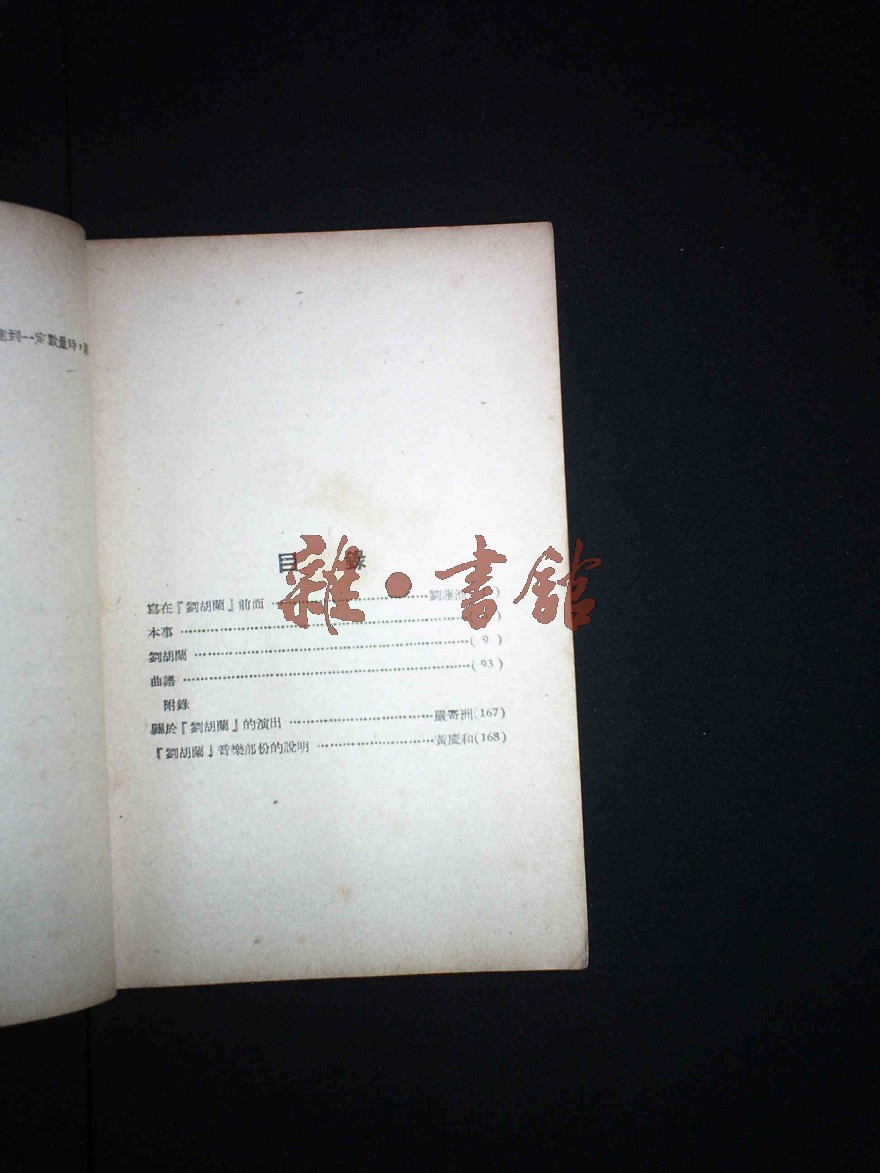 到一定數量時，
目錄
寫在『劉胡蘭』前面………………劉蓮池
本事………………………………
劉胡蘭………………………………( 9 )
曲譜………………………………( 93 )
附錄
關於『劉胡蘭』的演出………………嚴寄洲(167)
『劉胡蘭』音樂部份的說明………………黃慶和(168)
雜·書館